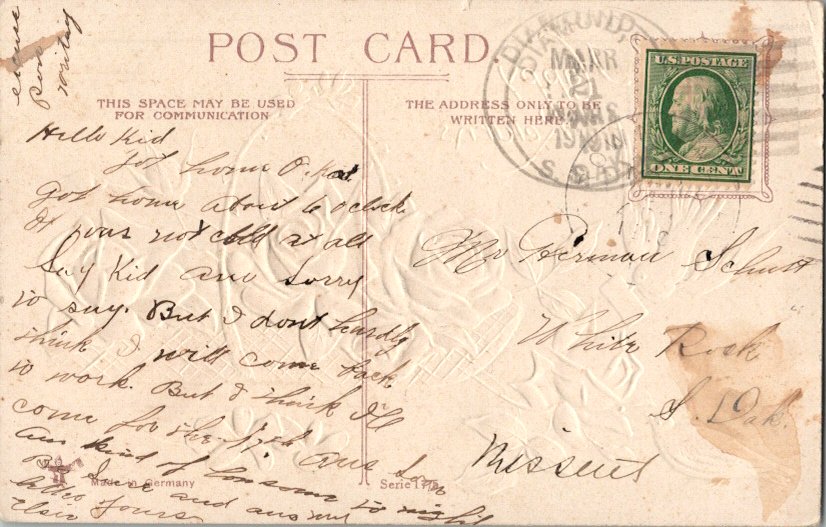 excuse
Poor
writing
POST CARD.
THIS SPACE MAY BE USED
FOR COMMUNICATION
THE ADDRESS ONLY TO BE
WRITTEN HERE.
DIAMOND,
MAR
21
1910
S. DAK
U.S. POSTAGE
ONE CENT
Hello Kid
Got home O.K.
Got home about 6 oclock
It was not cold at all
Say Kid am sorry
to say. But I dont hardly
think I will come back
to work. But I think Ill
come for the 17th
am kind of lonesome to night
Be Sure and answer
Adieu Yours
Elsie
Mr Herman Schutt
White Rock
S. Dak.
Missent
Made in Germany
Serie 17